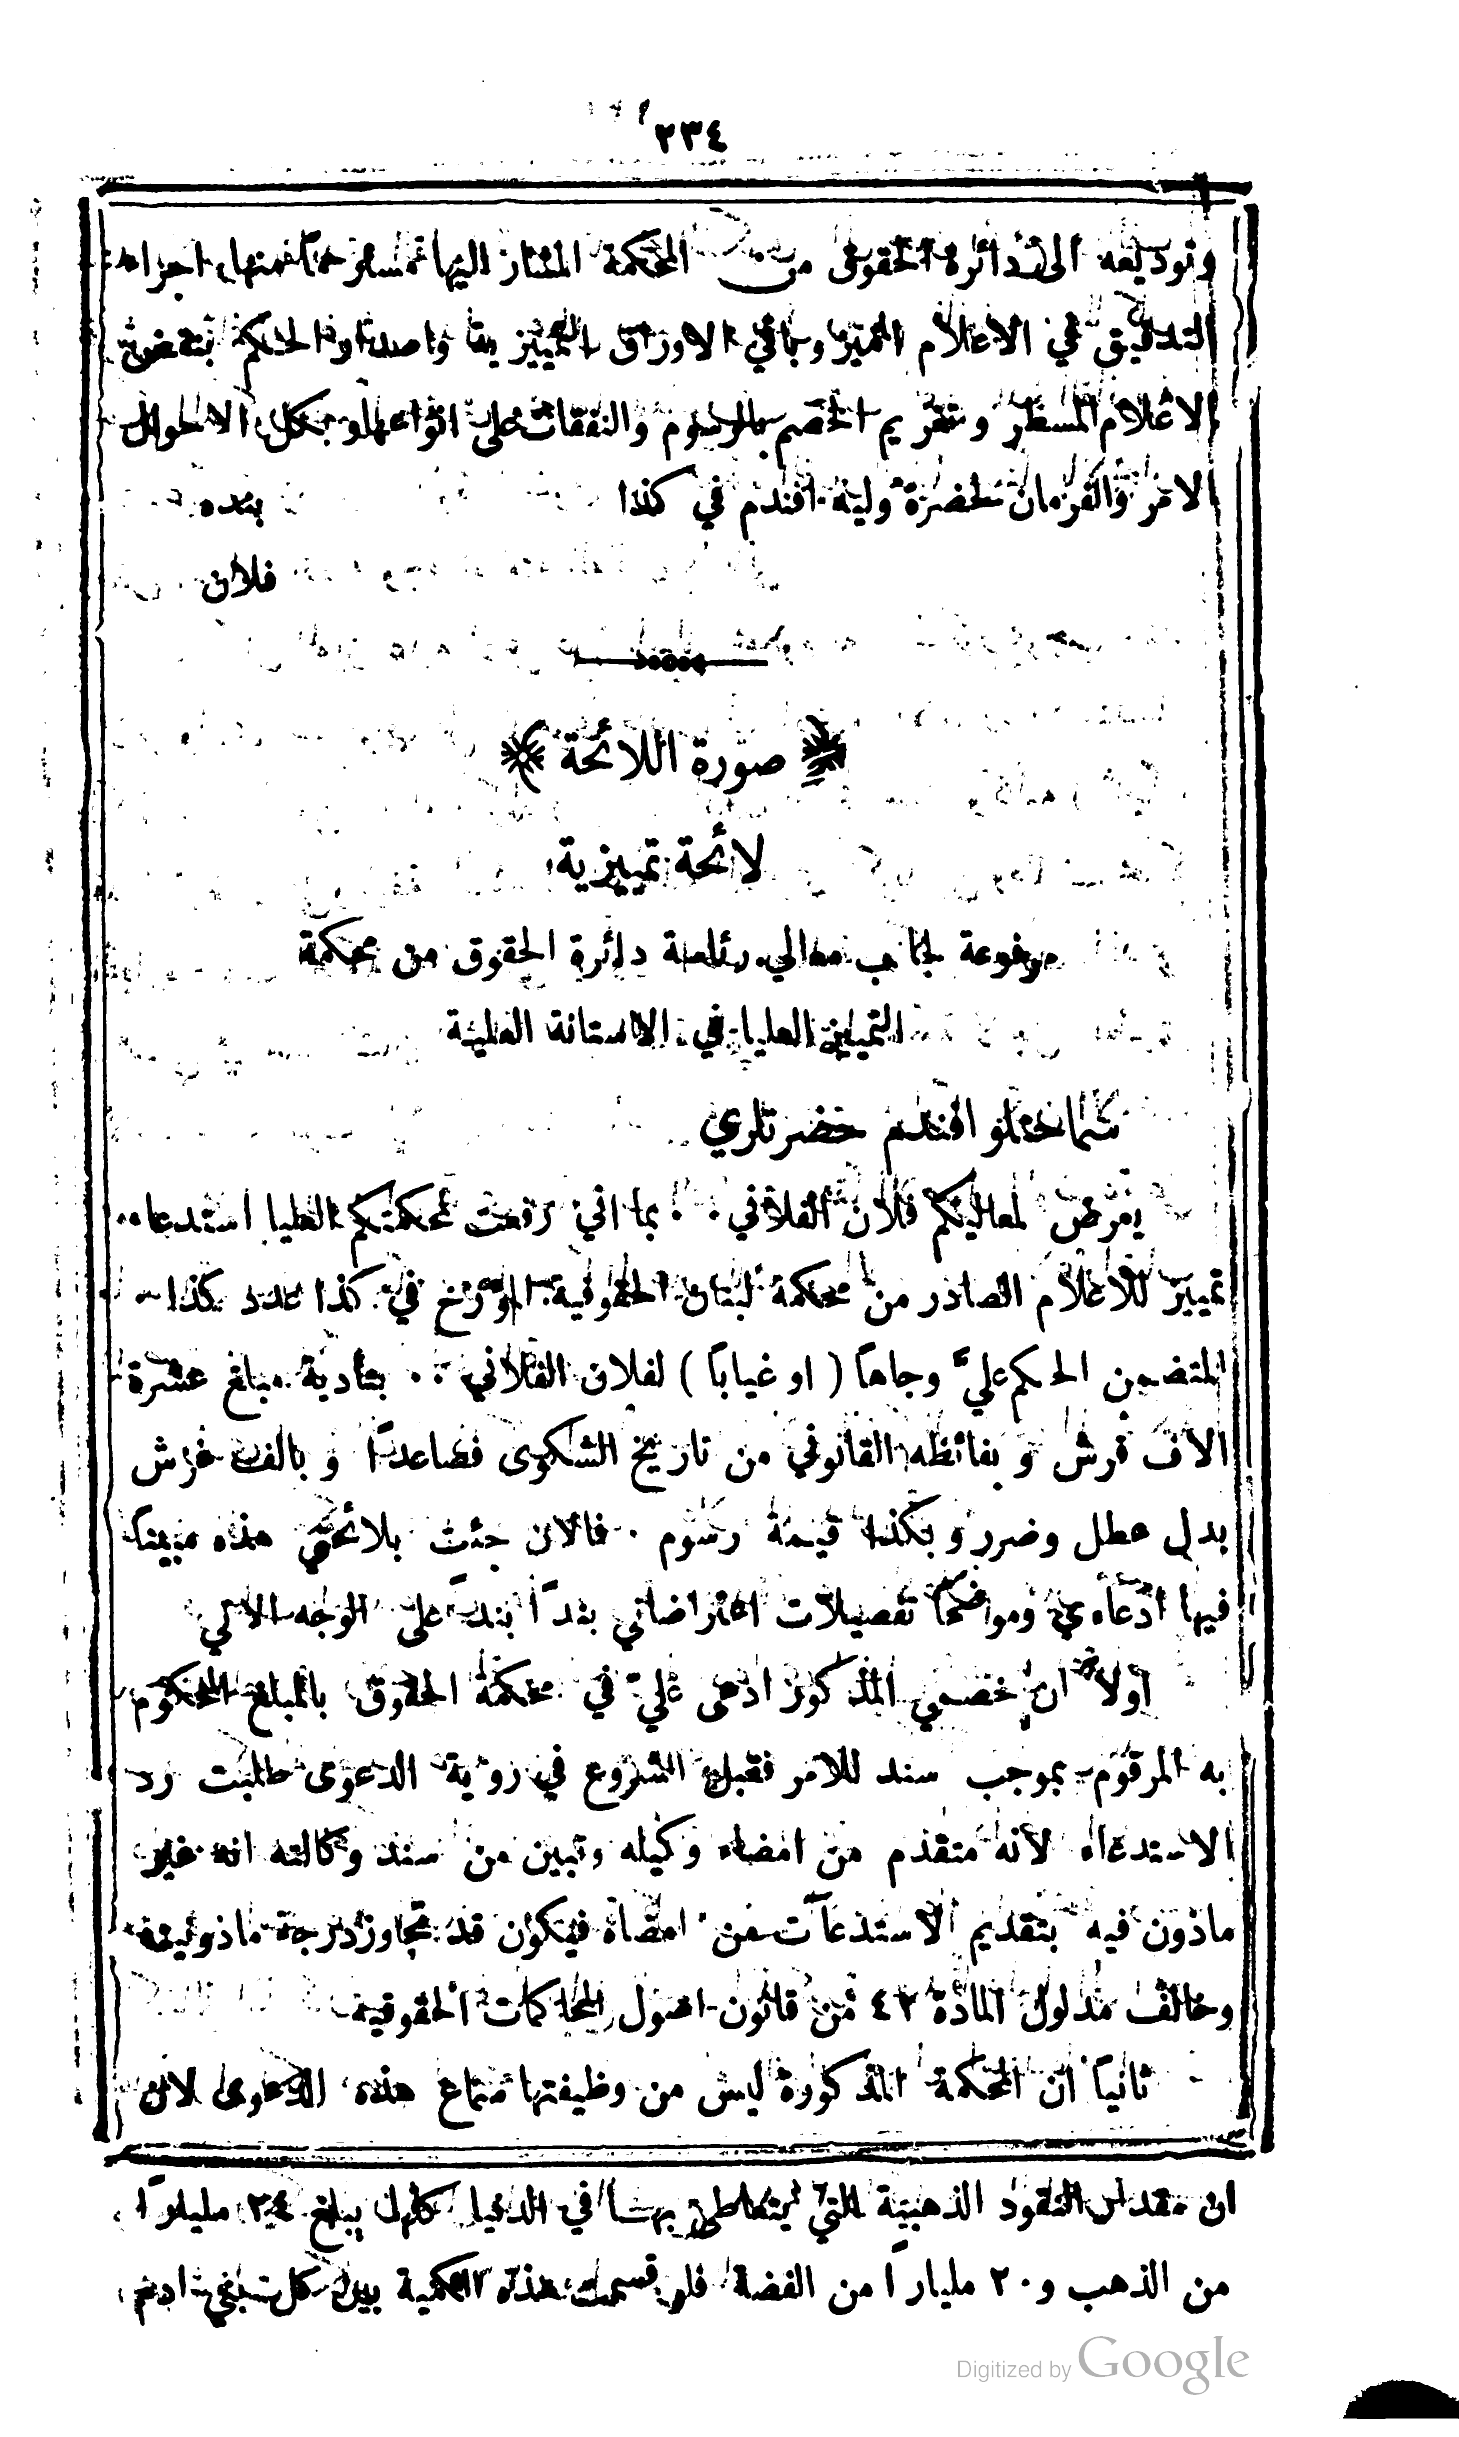 ٢٣٤
وتوديعه الى دائرة الحقوق من المحكمة المشار اليها مسترحماً منها اجراء
التدقيق في الاعلام المميز وباقي الاوراق التمييزية واصدار الحكم بنقض
الاعلام المسطر وتغريم الخصم بالرسوم والنفقات على انواعها وبكل الاحوال
الامر والفرمان لحضرة وليه افندم في كذا بنده
فلان
﴿ صورة اللائحة ﴾
لائحة تمييزية
مرفوعة لجانب معالي رئاسة دائرة الحقوق من محكمة
التمييز العليا في الاستانة العلية
سماحتلو افندم حضرتلري
يعرض لمعاليكم فلان الفلاني . . بما اني رفعت لمحكمتكم العليا استدعاء
تمييز للاعلام الصادر من محكمة لبنان الحقوقية المؤرخ في كذا عدد كذا
المتضمن الحكم عليَّ وجاهاً ( او غياباً ) لفلان الفلاني . . بتأدية مبلغ عشرة
الاف قرش وبفائظه القانوني من تاريخ الشكوى فصاعداً وبالف غرش
بدل عطل وضرر وبكذا قيمة رسوم . فالان جئت بلائحتي هذه مبيناً
فيها ادعاءي وموضحاً تفصيلات اعتراضاتي بنداً بنداً على الوجه الاتي
اولاً ان خصمي المذكور ادعى عليّ في محكمة الحقوق بالمبلغ المحكوم
به المرقوم بموجب سند للامر فقبل الشروع في روية الدعوى طلبت رد
الاستدعاء لانه متقدم من امضاء وكيله وتبين من سند وكالته انه غير
ماذون فيه بتقديم الاستدعآت من امضاه فيكون قد تجاوز درجة ماذونيته
وخالف مدلول المادة ٤٢ من قانون اصول المحاكمات الحقوقية
ثانياً ان المحكمة المذكورة ليس من وظيفتها سماع هذه الدعوى لان
ان مقدار النقود الذهبية التي يتعاطى بها في الدنيا كلها يبلغ ٢٤ ملياراً
من الذهب و٢٠ ملياراً من الفضة فلو قسمت هذه الكمية بين كل بني ادم
Digitized by Google